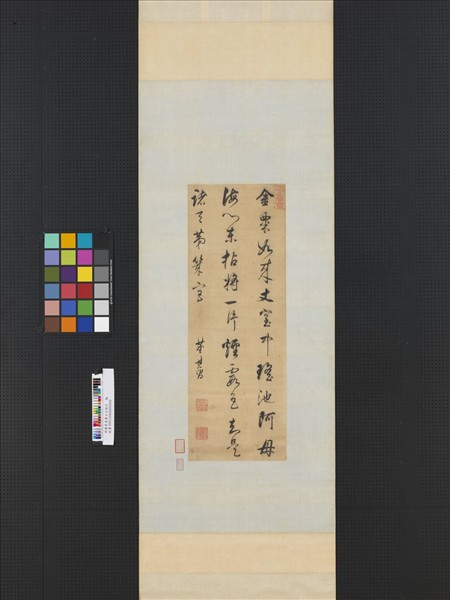 金粟如來丈室中瑤池阿母
海東拈將一片煙霞色是
諸天第幾宮
董其昌